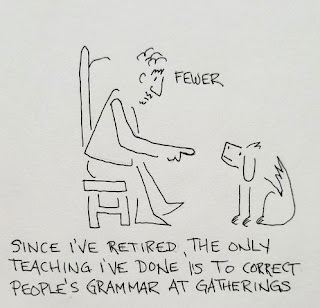 FEWER
SINCE I'VE RETIRED, THE ONLY
TEACHING I'VE DONE IS TO CORRECT
PEOPLE'S GRAMMAR AT GATHERINGS